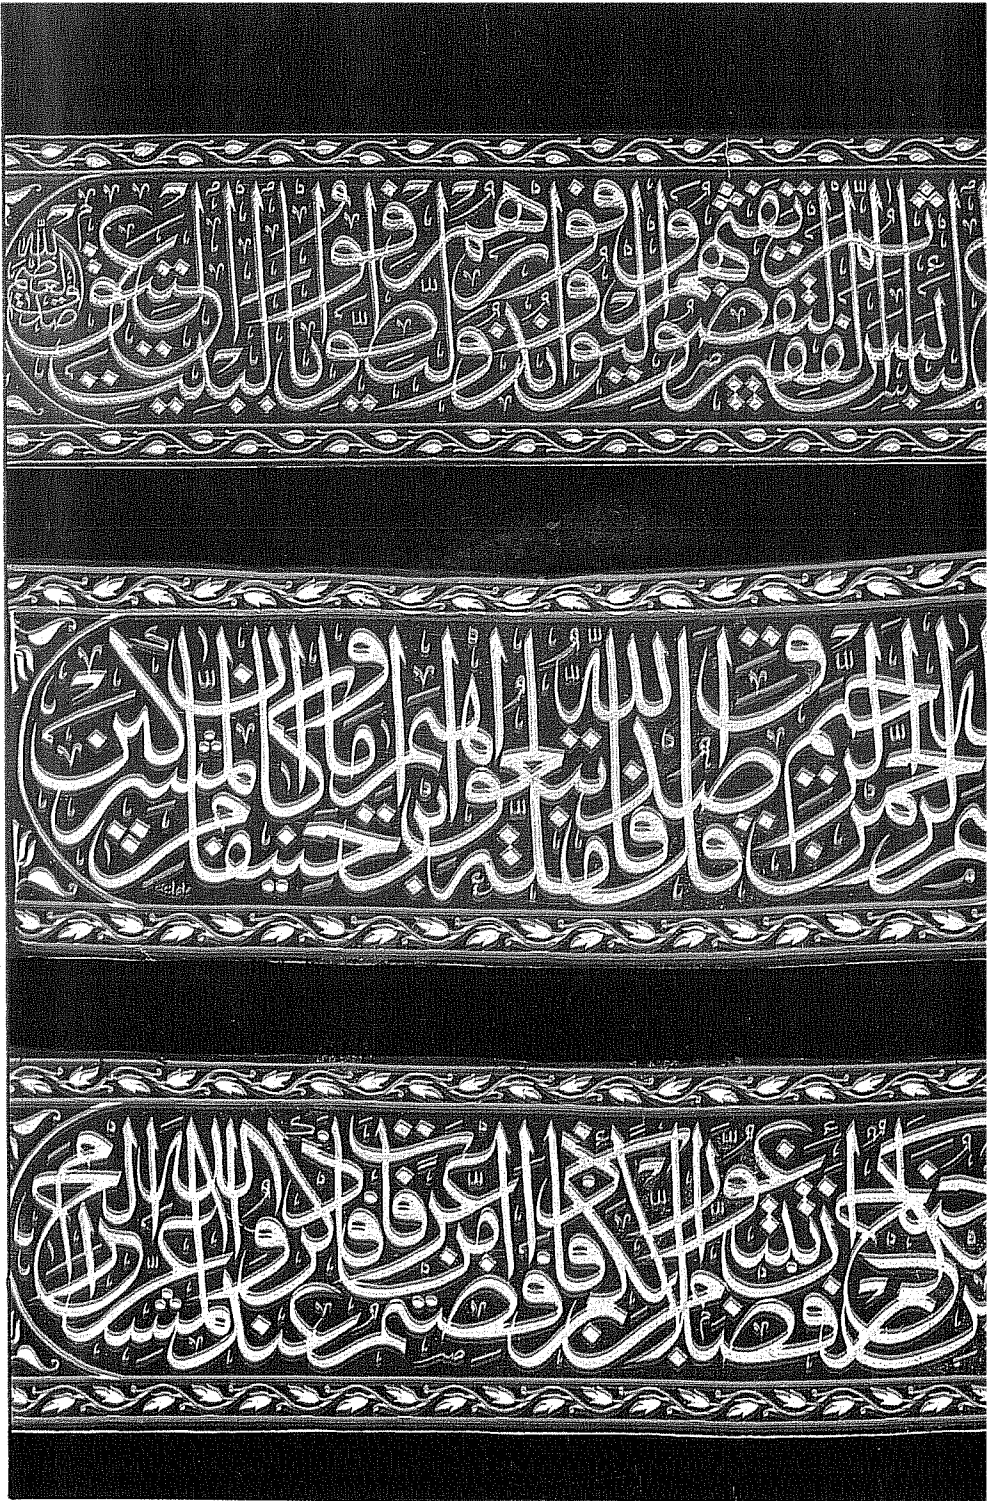 البائس الفقير ثم ليقضوا تفثهم وليوفوا نذورهم وليطوفوا بالبيت العتيق
صدق الله العظيم
الرحمن الرحيم قل صدق الله فاتبعوا ملة إبراهيم حنيفا وما كان من المشركين
جناح أن تبتغوا فضلا من ربكم فإذا أفضتم من عرفات فاذكروا الله عند المشعر الحرام